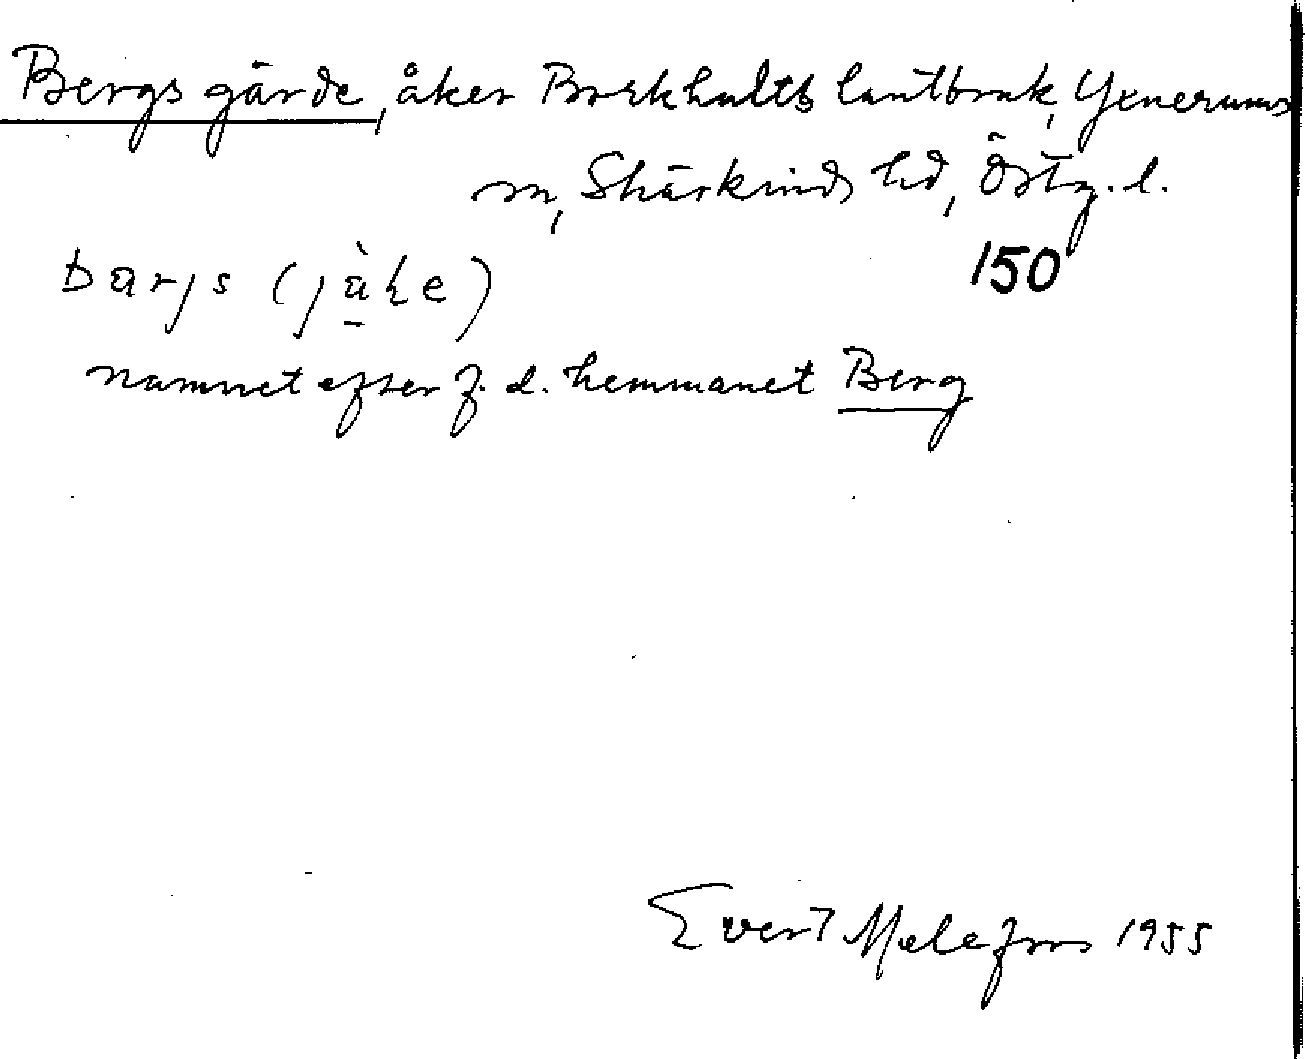 Bergs gärde, åker Borkhults lantbruk, Yxnerums
sn, Skärkinds hd, Östg. l.
150
barjs (jàɫe)
namnet efter f. d. hemmanet Berg
Evert Melefors 1955